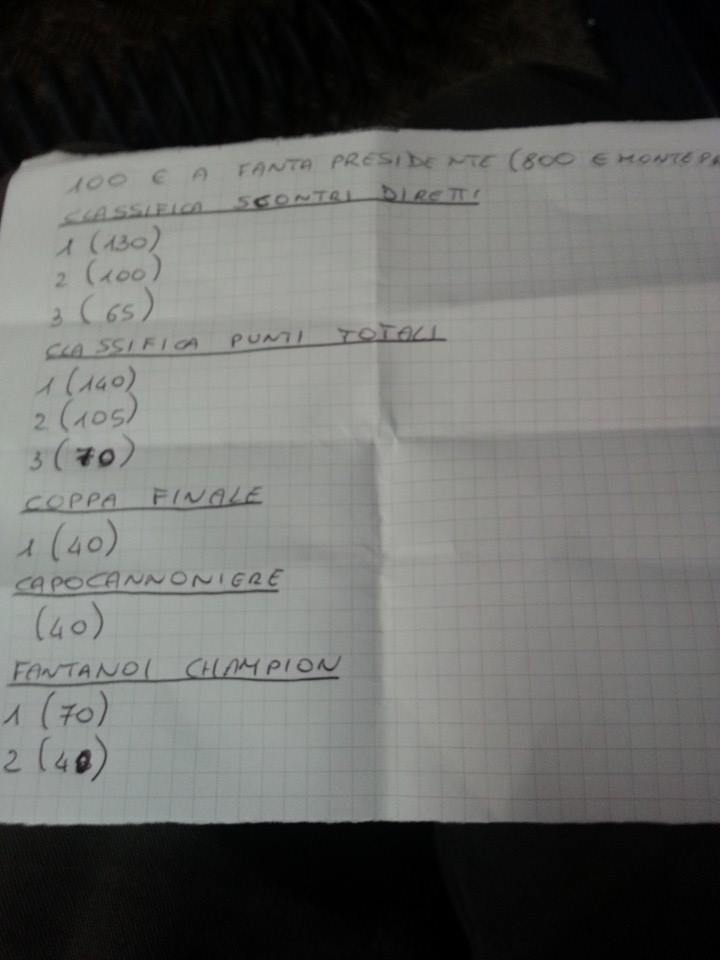 100 E A FANTA PRESIDENTE (800 E MONTEPR
CLASSIFICA SCONTRI DIRETTI
1 (130)
2 (100)
3 (65)
CLASSIFICA PUNTI TOTALI
1 (140)
2 (105)
3 (70)
COPPA FINALE
1 (40)
CAPOCANNONIERE
(40)
FANTANOI CHAMPION
1 (70)
2 (40)